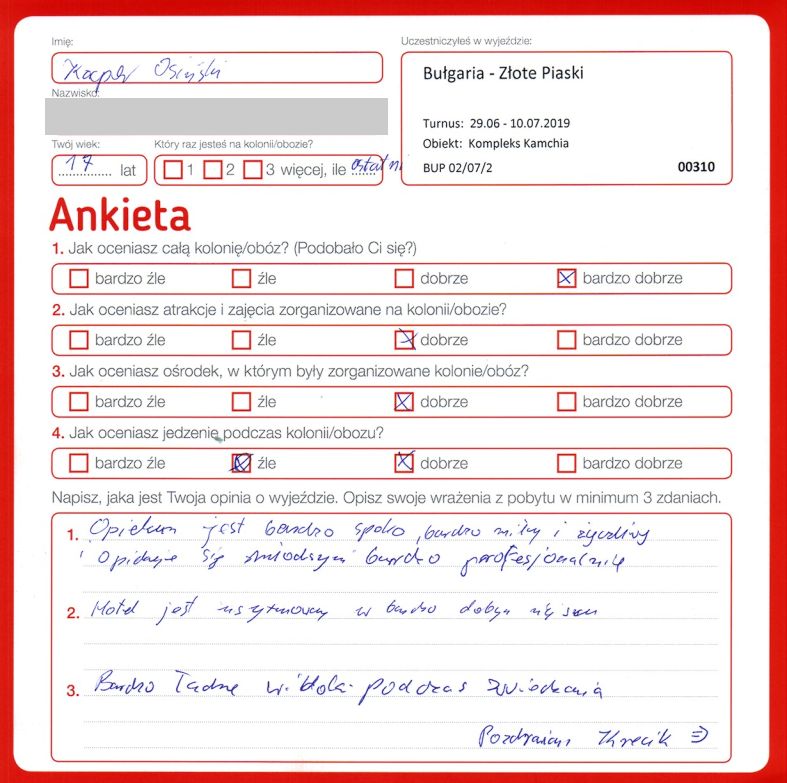 Imię:
Uczestniczyłeś w wyjeździe:
Kacper Osiński
Bułgaria - Złote Piaski
Nazwisko:
Turnus: 29.06 - 10.07.2019
Twój wiek:
Który raz jesteś na kolonii/obozie?
Obiekt: Kompleks Kamchia
17 lat
1 2 3 więcej, ile ostatni
BUP 02/07/2
00310
Ankieta
1. Jak oceniasz całą kolonię/obóz? (Podobało Ci się?)
bardzo źle źle dobrze bardzo dobrze
2. Jak oceniasz atrakcje i zajęcia zorganizowane na kolonii/obozie?
bardzo źle źle dobrze bardzo dobrze
3. Jak oceniasz ośrodek, w którym były zorganizowane kolonie/obóz?
bardzo źle źle dobrze bardzo dobrze
4. Jak oceniasz jedzenie podczas kolonii/obozu?
bardzo źle źle dobrze bardzo dobrze
Napisz, jaka jest Twoja opinia o wyjeździe. Opisz swoje wrażenia z pobytu w minimum 3 zdaniach.
1. Opiekun jest bardzo spoko, bardzo miły i życzliwy
i opiekuje się młodszymi bardzo profesjonalnie
2. Hotel jest usytuowany w bardzo dobrym miejscu
3. Bardzo ładne widoki podczas zwiedzania
Pozdrawiam Krecik =)